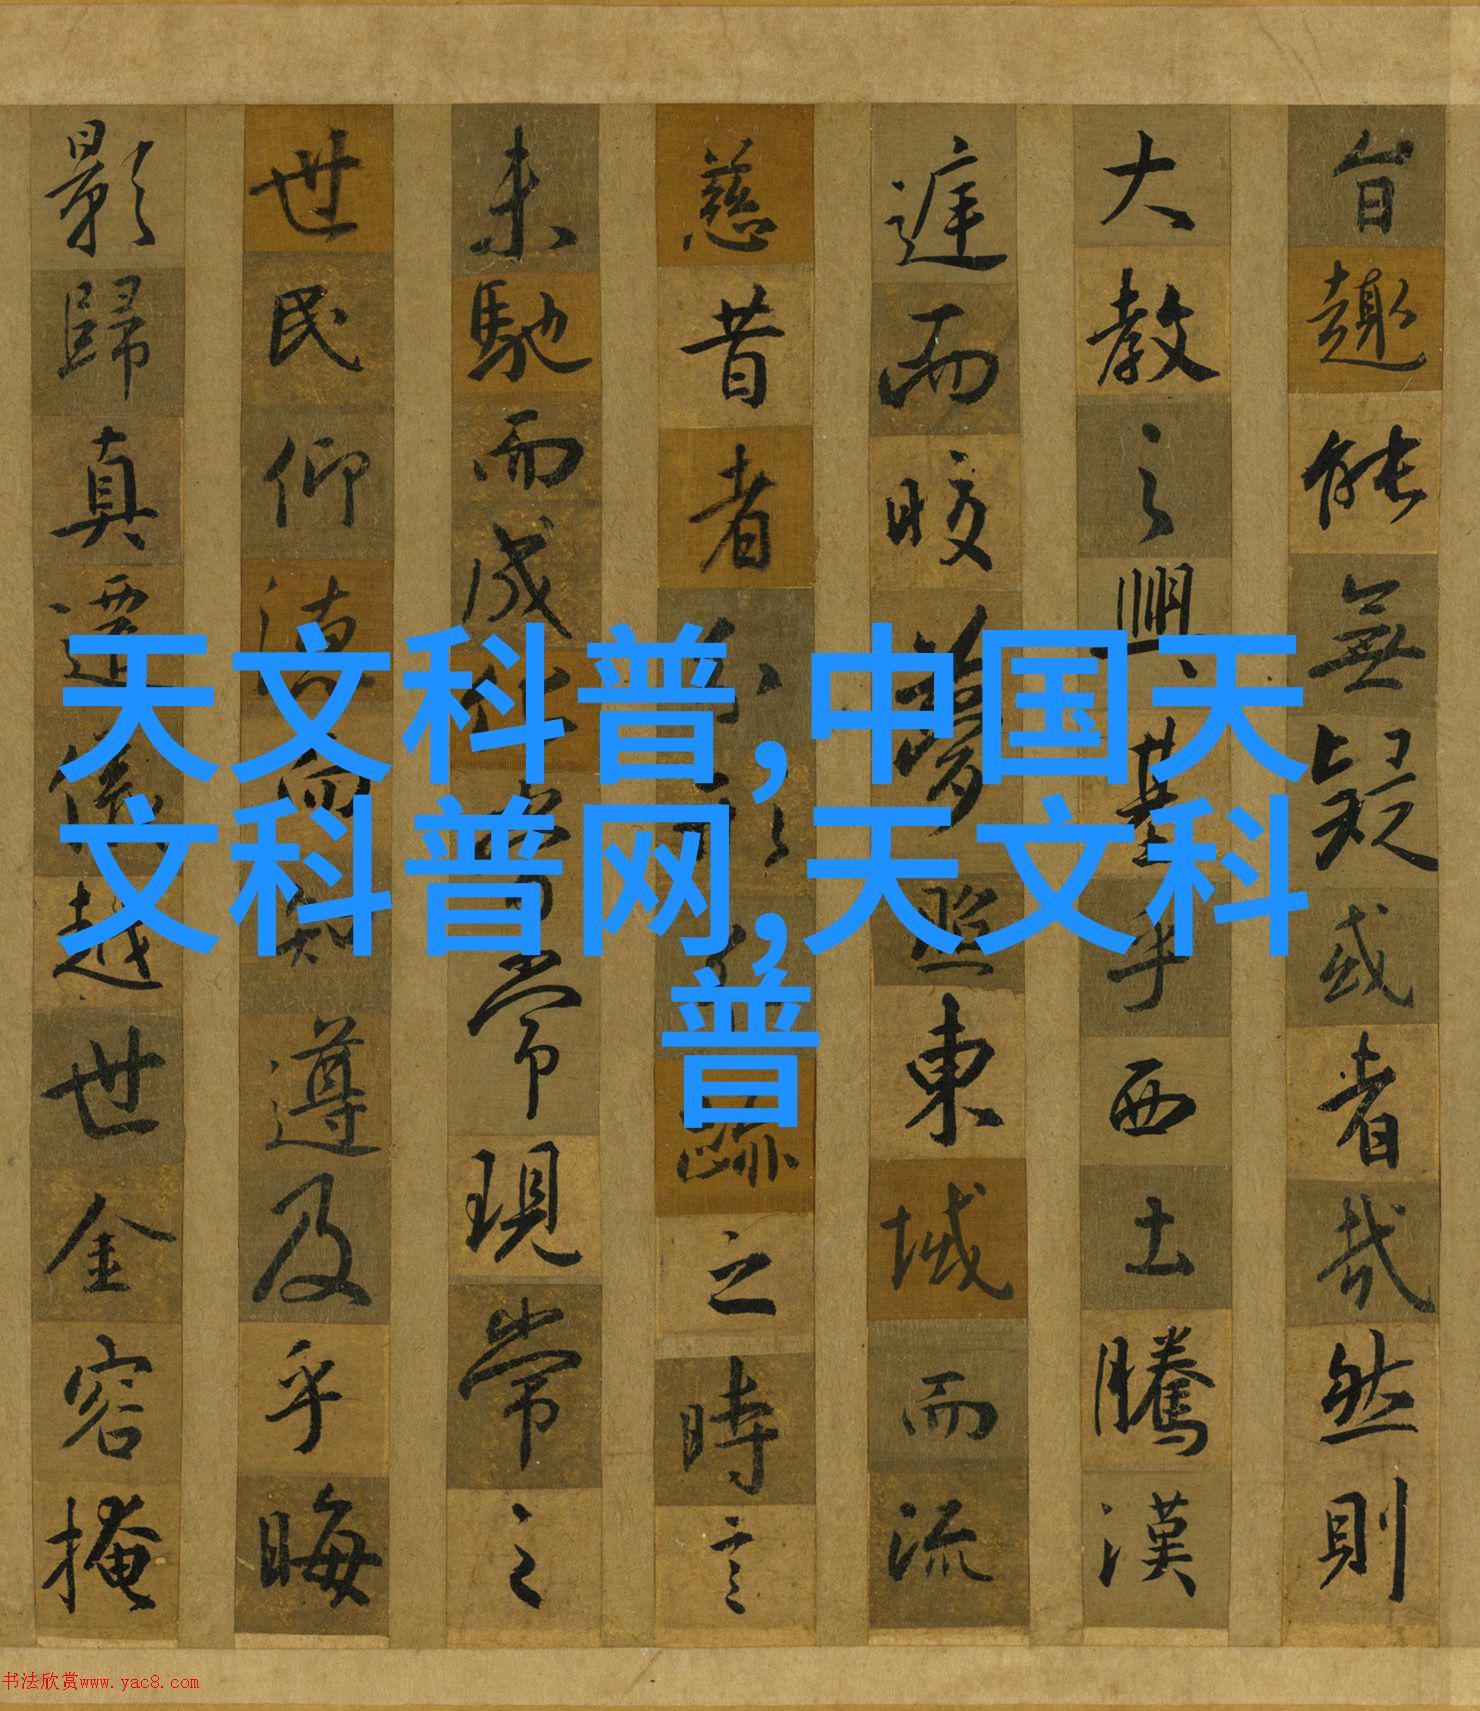 旨趣能無疑或者哉然則
大教之興基乎西土騰漢
庭而皎夢照東域而流
慈昔者分形分跡之時言
未馳而成化當常現常之
世民仰德而知遵及乎晦
影歸真遷儀越世金容掩
天文科普,中国天
文科普网,天文科
普
书法欣赏www.yac8.com